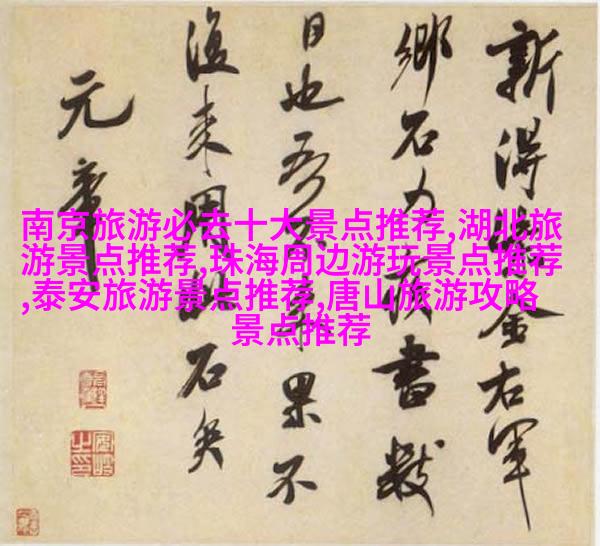 新得紫金右軍
鄉石力疾書數
日也吾事果不
復来用此石矣
元章
南京旅游必去十大景点推荐,湖北旅
游景点推荐,珠海周边游玩景点推荐
,泰安旅游景点推荐,唐山旅游攻略
景点推荐